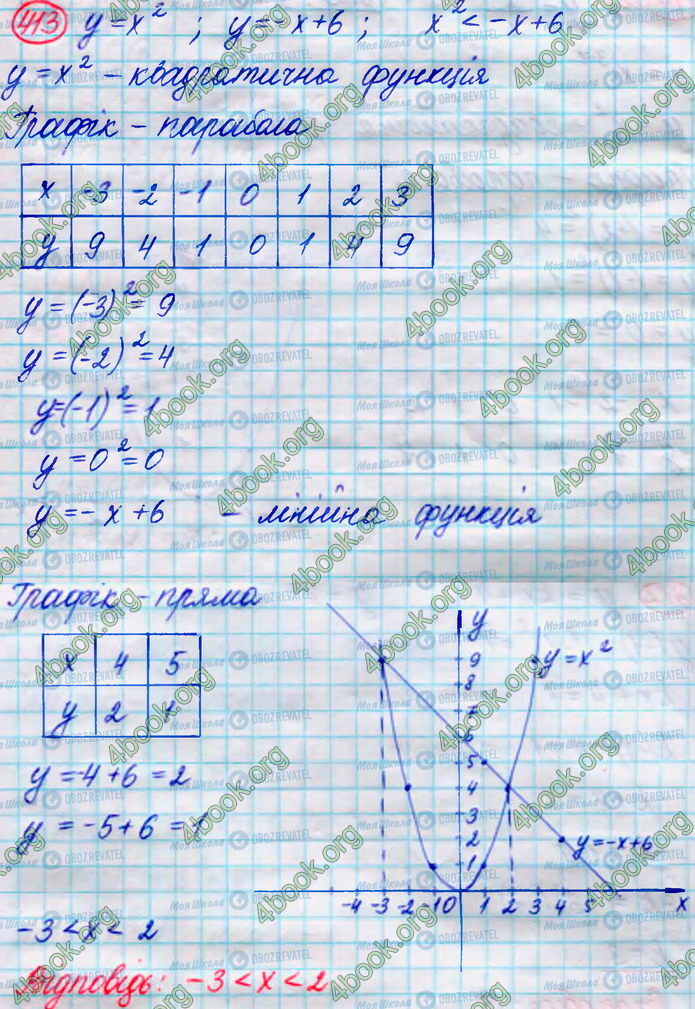 413 y = x² ; y = -x+6 ; x² < -x+6
y = x² – квадратична функція
Графік – парабола
x -3 -2 -1 0 1 2 3
y 9 4 1 0 1 4 9
y = (-3)² = 9
y = (-2)² = 4
y=(-1)² = 1
y = 0² = 0
y = - x + 6 – лінійна функція
Графік – пряма
x 4 5
y 2 1
y = -4+6 = 2
y = -5+6 = 1
y
9
8
7
6
5
4
3
2
1
-4 -3 -2 -1 0 1 2 3 4 5 x
y = x²
y = -x+6
-3 < x < 2
Відповідь: -3 < x < 2
4book.org
Моя Школа OBOZREVATEL